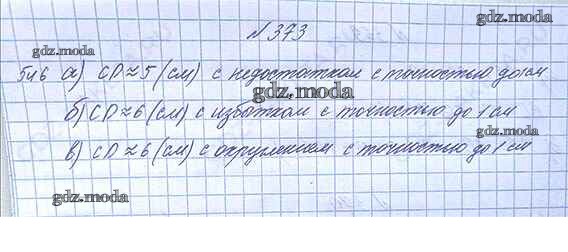 № 373
gdz.moda
5и6 а) CD ≈ 5 (см) с недостатком с точностью до 1 см
gdz.moda
б) CD ≈ 6 (см) с избытком с точностью до 1 см
gdz.moda
в) CD ≈ 6 (см) с округлением с точностью до 1 см
gdz.moda
gdz.moda